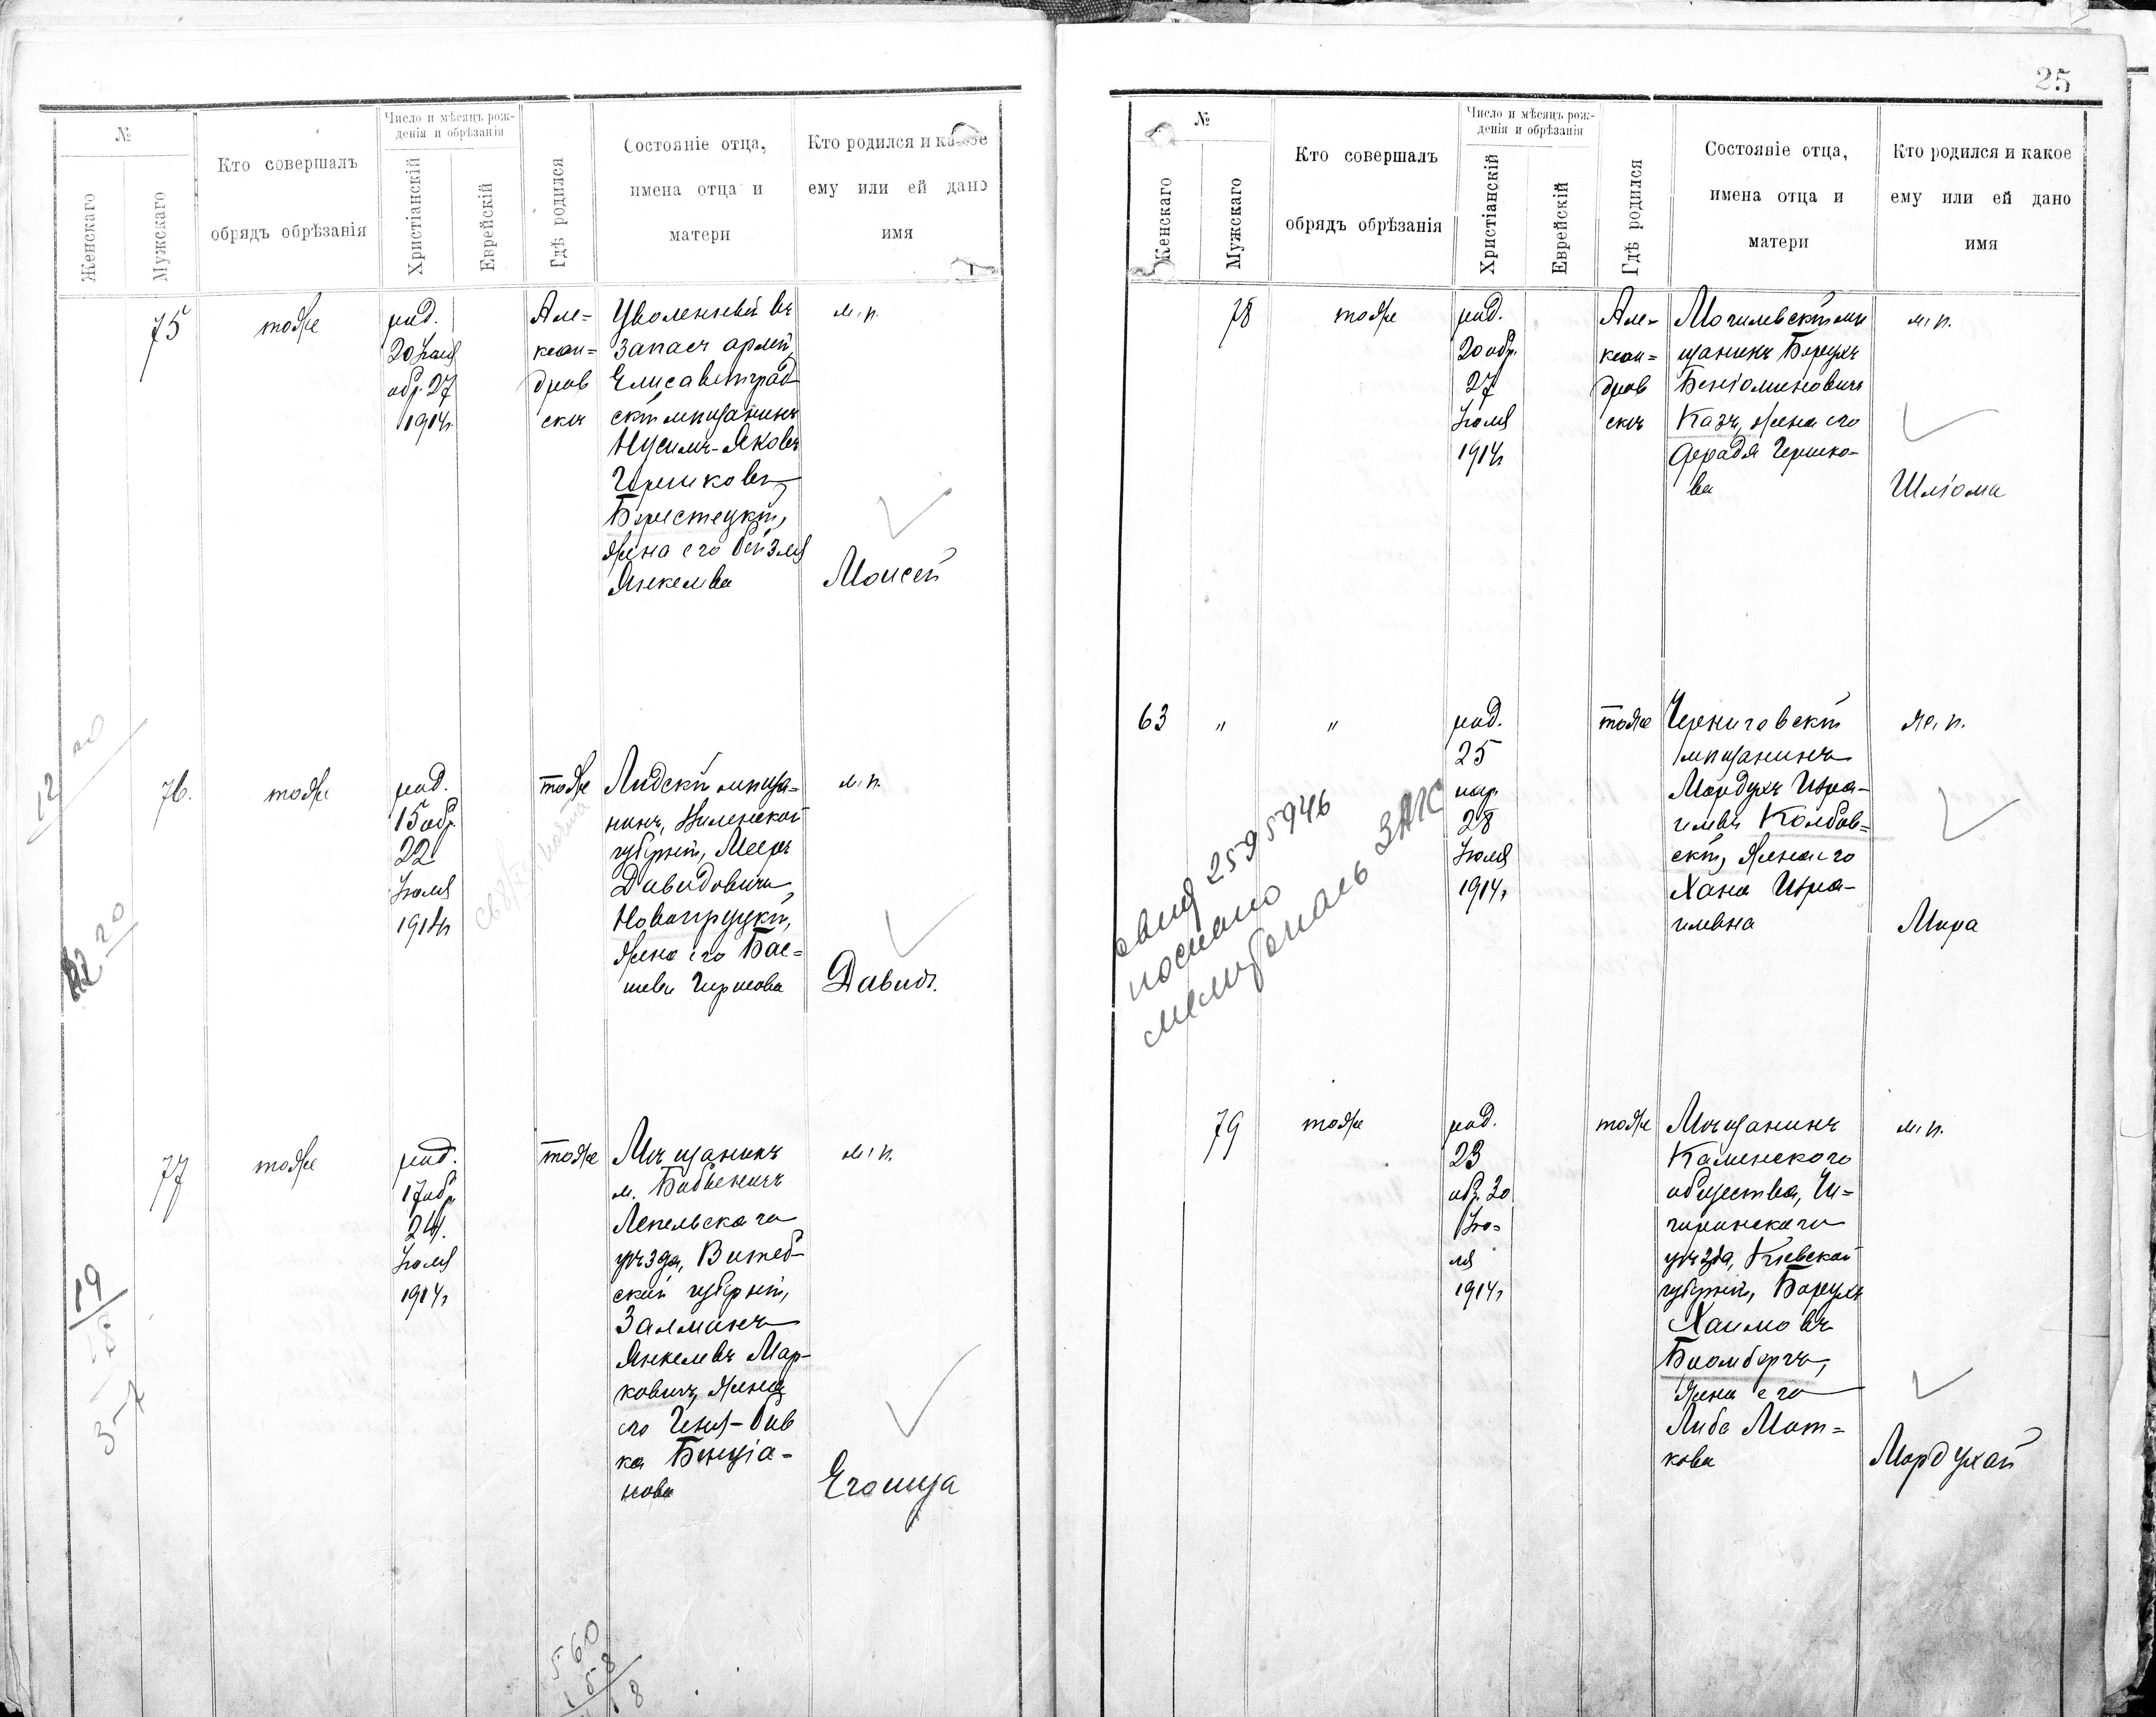 25
№
Женскаго
Мужскаго
Кто совершалъ
обрядъ обрѣзанія
Число и мѣсяцъ рож-
денія и обрѣзанія
Христіанскій
Еврейскій
Гдѣ родился
Состояніе отца,
имена отца и
матери
Кто родился и какое
ему или ей дано
имя
75
тоже
род.
20 Іюля
обр. 27
1914г.
Але=
ксан=
дров
скъ
Уволенный въ
запасъ арміи,
Елисаветград
скій мѣщанинъ
Нусимъ-Яковъ
Гершковъ
Берестецкій,
жена его Бейзля
Янкелева
м. п.
Моисей
76.
тоже
род.
15 обр.
22
Іюля
1914г
тоже
Лидскій мѣща=
нинъ, Виленской
губерніи, Мееръ
Давидовичъ
Новопруцкій,
жена его Бас=
шева Гиршова
м. п.
Давидъ.
77
тоже
род.
17 обр
24.
Іюля
1914г
тоже
Мѣщанинъ
м.
Лепельскаго
уѣзда, Витеб-
ской губерніи,
Залманъ
Янкелевъ Мар-
ковичъ, жена
его Геня-Рив
ка Бенціа-
нова
м. п.
Егошуа
560
158
18
12
20
19
3-7
№
Женскаго
Мужскаго
Кто совершалъ
обрядъ обрѣзанія
Число и мѣсяцъ рож-
денія и обрѣзанія
Христіанскій
Еврейскій
Гдѣ родился
Состояніе отца,
имена отца и
матери
Кто родился и какое
ему или ей дано
имя
78
тоже
род.
20 обр.
27
Іюля
1914г
Але=
ксан=
дров
скъ
Могилевскій мѣ
щанинъ Борухъ
Беніоминовичъ
Казъ, жена его
Фрадя Гершко-
ва
м. п.
Шліома
63
"
"
род.
25
нар.
28
Іюля
1914г
тоже
Черниговскій
мѣщанинъ
Мордухъ Изра-
илевъ Колбов=
скій, жена его
Хана Изра-
илевна
ж. п.
Мира
свид 2595946
послано
ЗАГС
79
тоже
род.
23
обр. 30
Ію=
ля
1914г
тоже
Мѣщанинъ
Каменского
общества, Чи=
гиринскаго
уѣзда, Кіевской
губерніи, Борухъ
Хаимовъ
Бломбергъ,
жена его
Либа Мот=
кова
м. п.
Мордухай